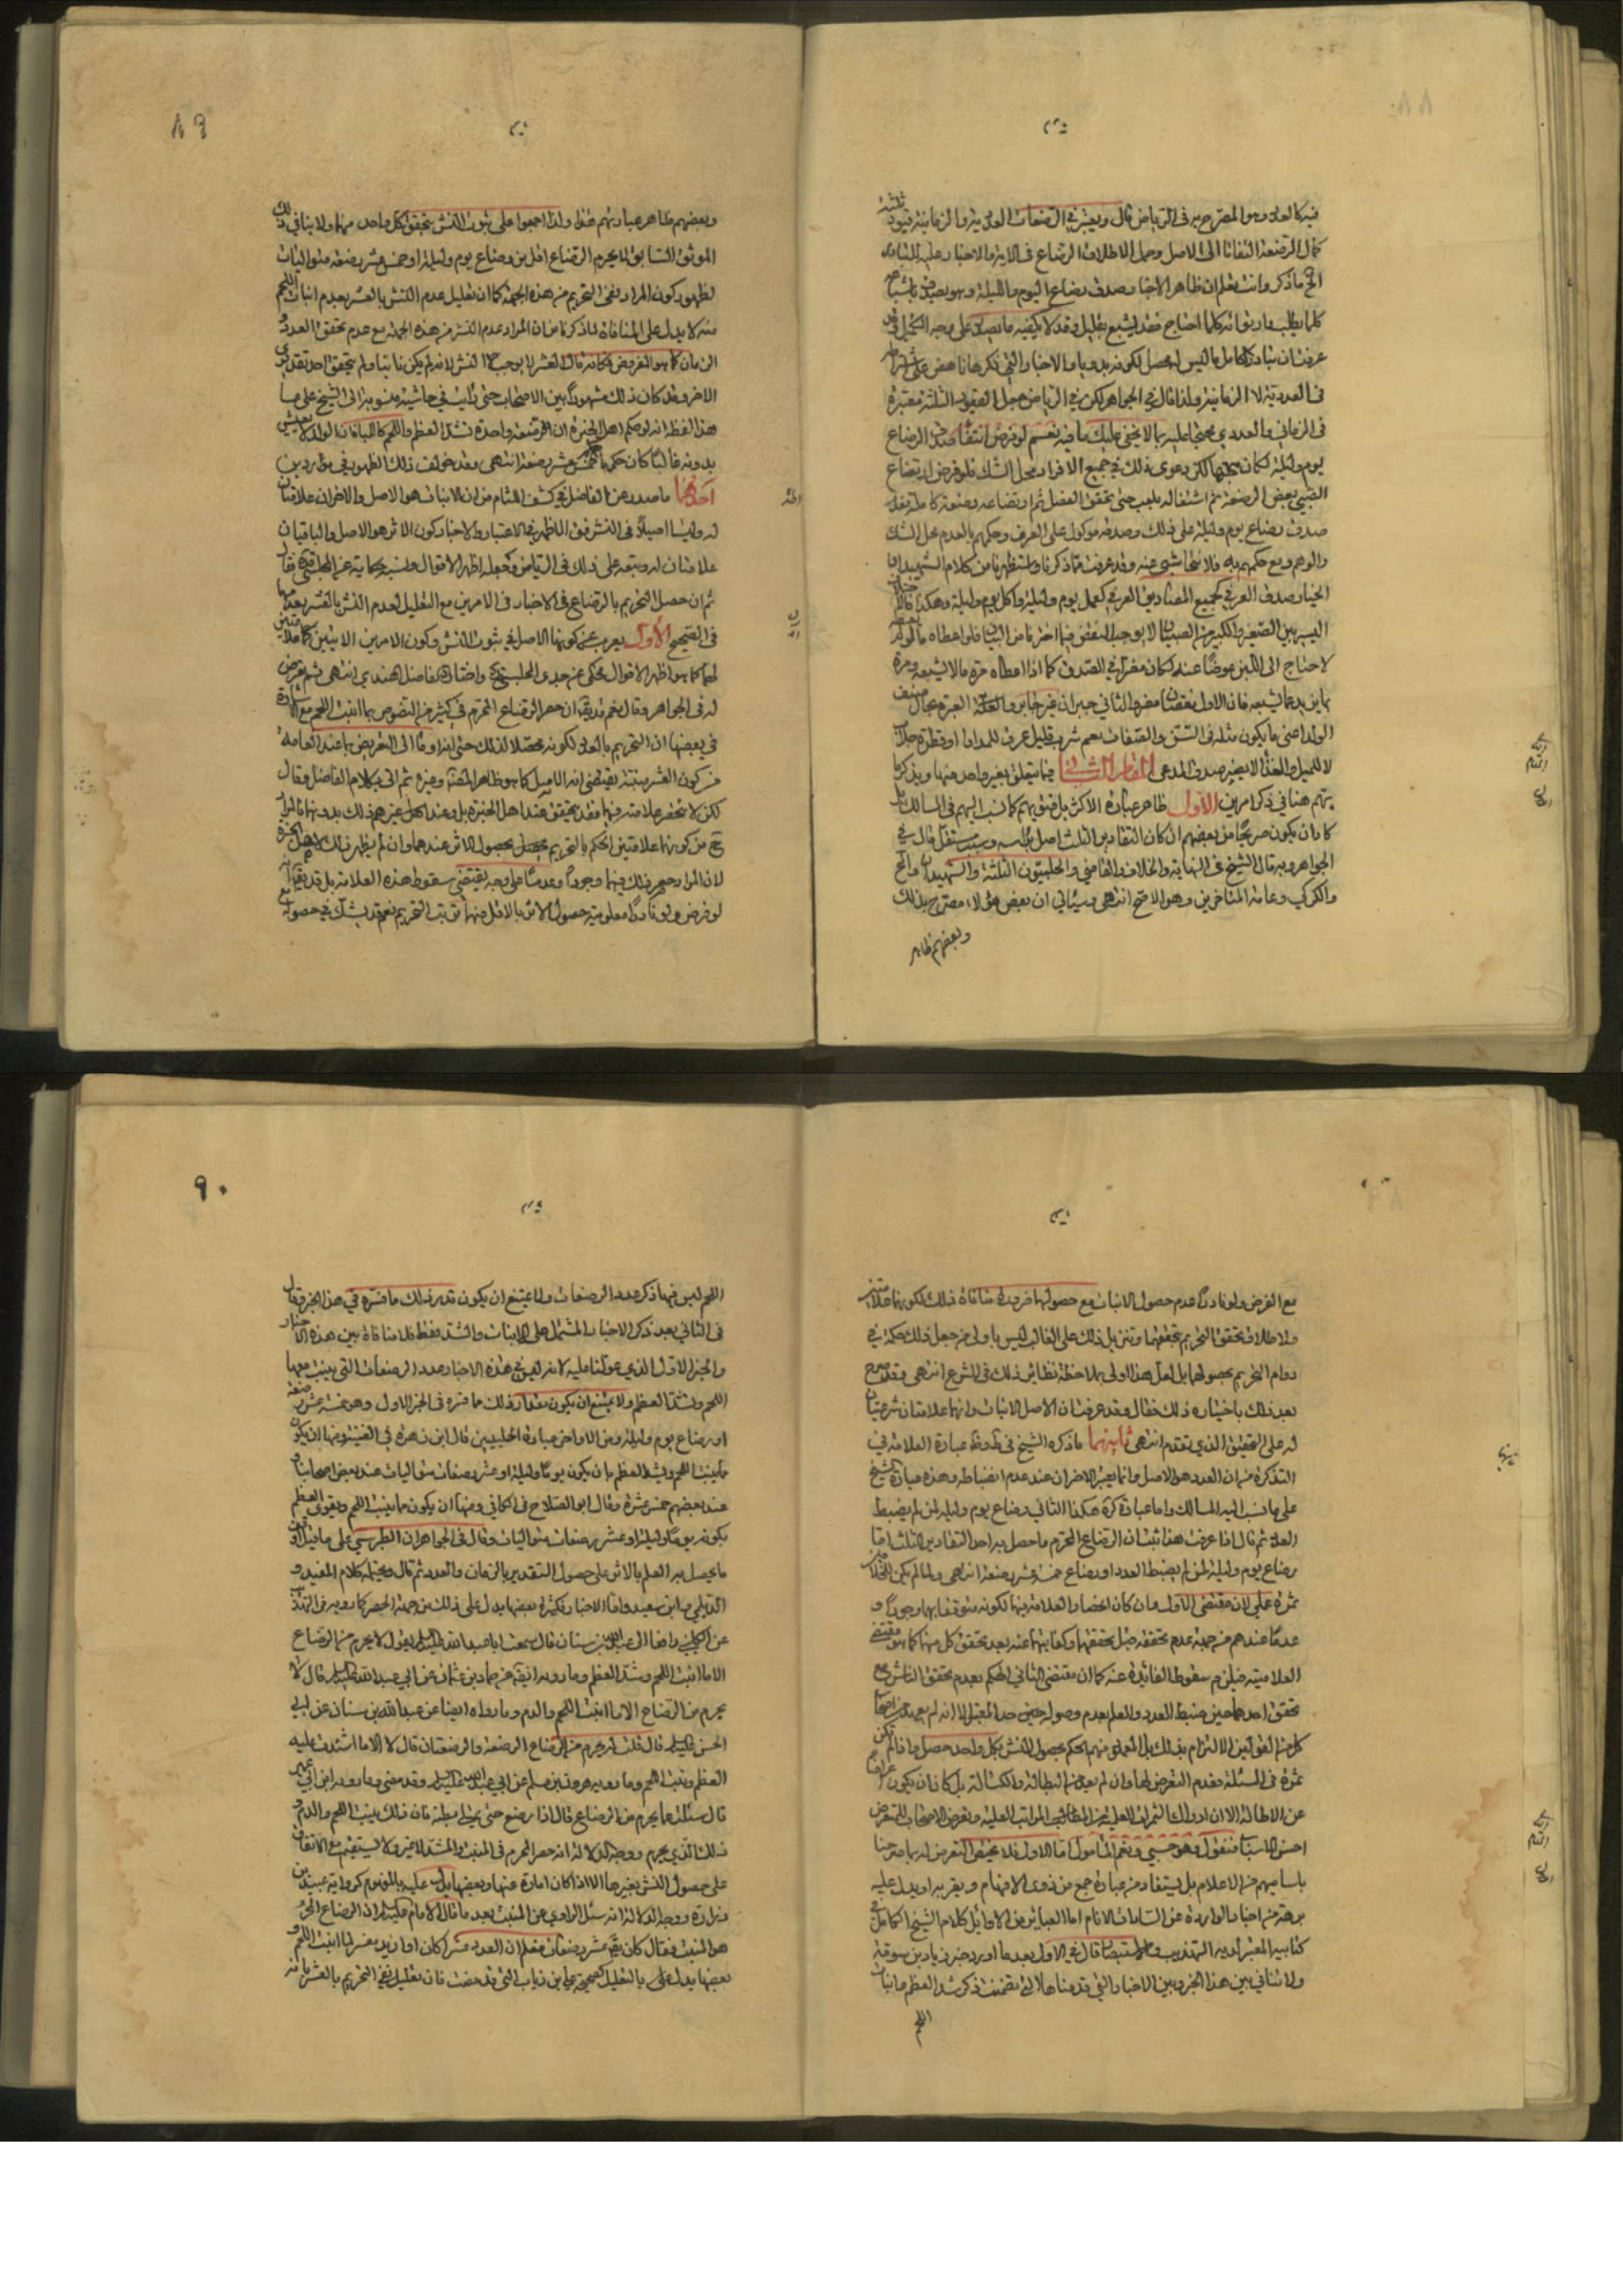 فيه كالعدد وهو المصرح به في الرياض قال ويعتبر في الرضعات العددية والزمانية قيود ثلثة
كمال الرضعة التفاتا الى الاصل وحمل الاطلاق الرضاع في الاية والاخبار عليه للتبادر
الخ ما ذكر وانت تعلم ان ظاهر الاخبار صدق رضاع اليوم والليلة وهو يصدق باشباعه
كلما يطلب وارتوائه كلما احتاج فقد يشبع بقليل وقد لا يكفيه ما
عرفت ان تبادر الكامل ليس والاخبار التي ذكرها ناهض على
في العددية لا الزمانية ولذا قال في الجواهر لكن في الرياض جعل القيود الثلثة معتبرة
في الزماني والعددي محتجا عليه بما لا يخفى عليك ما فيه نعم لو فرض انتفاء صدق الرضاع
يوم وليلة لكان لكن دعوى ذلك في جميع الافراد محل الشك فلو فرض ارتضاع
الصبي بعض الرضعة ثم اشتغاله بلعب حتى تحقق الفصل ثم ارتضاعه رضعة كاملة بعد
صدق رضاع يوم وليلة على ذلك وصدقه موكول على العرف وحكمهم بالعدم محل الشك
والوهم ومع حكمهم به فلا نتحاشى عنه وقد عرفت مما ذكرنا واستظهرنا من كلام الشهيد ان
الخيار صدق العرفي كجميع المصاديق العرفي كعمل يوم وليلة واكل يوم وليلة وهكذا
اليسير بين الصغير والكبير من الصبيان لا يوجب النقض فيما اخترنا من البيان فلو اعطاه
لاحتاج الى اللبن عوضا عنه لكان مضرا في الصدق كما اذا اعطاه مرة ما لا يشبعه ومرة
بما يزيد عما يشبعه فان الاول نقصان مضر والثاني جبران غير جابر
الولد اعني ما يكون مثله في السن والصفات نعم شرب قليل عرفي للمداوا او قطرة
لا للميل والغذاء لا يضر صدق المدعى المقام الثاني فيما يتعلق بغير واحد منها ويذكر ما
يتم هنا في ذكر امرين الاول ظاهر عبارة الاكثر كما نسب اليهم في المسالك بل
كاد ان يكون صريحا من بعضهم ان كان التقادير الثلث اصل براسه وسبب مستقل قال في
الجواهر وبه قال الشيخ في النهاية والخلاف والقاضي والحلبيون الثلثة والشهيدان
والكركي وعامة المتاخرين وهو الاصح انتهى وسياتي ان بعض هؤلاء مصرح بذلك
وبعضهم ظاهر
وبعضهم ظاهر عبارتهم هذا ولذا اجمعوا على ثبوت النشر بتحقق كل واحد منها ولا ينافي ذلك
الموثق السابق لا يحرم الرضاع اقل من رضاع يوم وليلة او خمس عشر رضعة متواليات
لظهور كون المراد نفي التحريم من هذه الجهة كما ان تعليل عدم النشر بالعشر بعدم انبات اللحم
منه لا يدل على المنافاة لما ذكرنا من ان المراد عدم النشر من هذه الجهة مع عدم تحقق العدد و
الزمان كما هو المفروض فكانه قال العشر لا يوجب النشر لانه لم يكن نابتا ولم يتحقق احد
الاخر وقد كان ذلك مشهودا بين الاصحاب حتى رايت في حاشية منسوبة الى الشيخ علي ما
هذا لفظه انه لو حكم اهل الخبرة ان الرضعة واحدة تشد العظم واللحم
بدونه غالبا كان حكمها كخمس عشر رضعة انتهى وقد خولف ذلك الظهور في موردين
احدهما ما صدر من الفاضل في كشف اللثام من ان الانبات هو الاصل والاخران علامتان
له وليسا اصيلا في النشر فهو الاظهر في الاعتبار والاخبار كون الاثر هو الاصل والباقيان
علامتان له وتبعه على ذلك في الرياض وجعله اظهر الاقوال
ثم ان حصل التحريم بالرضاع في الاخبار في الامرين مع التعليل لعدم النشر بالعشر بعدمها
في الصحيح الاول يعرب عن كونها الاصل في ثبوت النشر وكون الامرين الاخيرين كالعلامتين
لهما كما هو اظهر الاقوال المحكي عن جدي المجلسي واختاره الفاضل الهندي انتهى ثم تعرض
له في الجواهر وقال نعم قد يقال ان حصر الرضاع المحرم في كثير من النصوص بما انبت اللحم
في بعضها ان التحريم بالعدد لكونه محصلا لذلك حتى انه اوما الى التعريض بما عند العامة
من كون العشر منبتة يقتضي انه الاصل كما هو ظاهر المقنعة وغيره ثم اتى بكلام الفاضل وقال
لكن لا تنحصر علامته فيها فقد يتحقق عند اهل الخبرة بل وعند غيرهم ذلك بدونها
مع من كونها علامتين الحكم بالتحريم بحصول الاثر عندهما وان لم يظهر ذلك لاهل الخبرة
لان المراد حصر ذلك فيهما وجودا وعدما على وجه يقتضي سقوط هذه العلامة بل قد يقال
لو فرض ولو نادرا معلومية حصول الاثر بالاقل منهما ترتب التحريم نعم قد يشك في حصوله
مع الفرض ولو نادرا عدم حصول الانبات مع حصولها ضرورة منافاة ذلك لكونها علامتين
ولا طلاق تحقق التحريم بتحققهما وتنزيل ذلك على الغالب ليس باولى من جعل ذلك حكمة في
دوام التحريم بحصولهما بل لعل هذا اولى بملاحظة نظائر ذلك في الشرع انتهى وقد صرح
بعد ذلك باختياره ذلك فقال وقد عرفت ان الاصل الانبات وانهما علامتان شرعيتان
له على التحقيق الذي تقدم انتهى ثانيهما ما ذكره الشيخ في ط وظ عبارة العلامة في
التذكرة من ان العدد هو الاصل وانما يعتبر الاخران عند عدم انضباطه وهذه عبارة الشيخ
على ما نسب اليه المسالك واما عبارة كرة هكذا الثاني رضاع يوم وليلة لمن لم يضبط
العدد ثم قال اذا عرفت هذا ثبت ان الرضاع المحرم ما حصل به احد التقادير الثلث اما
رضاع يوم وليلة لمن لم يضبط العدد او رضاع خمسة عشر رضعة انتهى ولما لم يكن للخلاف
ثمرة على لان مقتضى الاول وان كان انحصار العلامة فيهما لكونه متوقفا بهما وجودا و
عدما عندهم من جهة عدم تحققه قبل تحققهما وكفايتهما عنه بعد تحقق كل منهما كما هو مقتضى
العلامية فيلزم سقوط الفائدة عنه كما ان مقتضى الثاني الحكم بعدم تحقق الناشر مع
تحقق احدهما حين ضبط العدد والعلم بعدم وصوله حين حد المعتبر الا انه لم يعهد من اصحاب
كل من القولين الالتزام بذلك بل المعلوم منهم الحكم بحصول النشر بكل واحد حصل واذا لم تكن
ثمرة في المسئلة فعدم التعرض لها وان لم يعد من البطالة والكسالة بل كاد ان يكون اعراضا
عن الاطالة الا ان ادراك الثمرات العلمية من المطالب المراتب العلية وتعرض الاصحاب للتعرض
احسن الاسباب فنقول وهو حسبي ونعم المامول اما الاول فلا يقتضي التعرض له بما صرحنا
باساميهم من الاعلام بل يستفاد من عبارة جمع من ذوي الافهام ويقربه او يدل عليه
برهة من اخبار الواردة عن السادات الانام اما العبائر من الاوائل كلام الشيخ الكامل في
كتابيه المعتبرين التهذيب والاستبصار قال في الاول بعد ما اورد خبر زياد بن سوقة
ولا تنافي بين هذا الخبر وبين الاخبار التي قدمناها لانها تضمنت ذكر شد العظم وانبات
اللحم
اللحم ليس فيها ذكر عدد الرضعات ولا يمتنع ان يكون قدر ذلك ما فسره في هذا الخبر وقال
في الثاني بعد ذكر الاخبار المشتمل على الانبات والشد فقط فلا منافاة بين هذه الاخبار
والخبر الاول الذي عولنا عليه لانه ليس في هذه الاخبار عدد الرضعات التي ينبت معها
اللحم ويشتد العظم ولا يمتنع ان يكون مقدار ذلك ما فسره في الخبر الاول وهو خمسة عشر رضعة
او رضاع يوم وليلة ومن الاواخر عبارة الحلبيين قال ابن زهرة في الغنية ومنها ان يكون
ما ينبت اللحم ويشد العظم بان يكون يوما وليلة او عشر رضعات متواليات عند بعض اصحابنا و
عند بعضهم خمس عشرة وقال ابو الصلاح في الكافي ومنها ان يكون مما ينبت اللحم ويقوي العظم
بكونه يوما وليلة او عشر رضعات متواليات وقال في الجواهر ان الطبرسي على ما قيل
ما يحصل به العلم بالاثر على حصول التقدير بالزمان والعدد ثم قال ويحتمله كلام المفيد و
الديلمي وابن سعيد واما الاخبار فكثيرة بعضها يدل على ذلك من جهة الحصر كما رويه في التهذيب
عن الكليني رافعا الى عبد الله بن سنان قال سمعت ابا عبد الله عليه السلام يقول لا يحرم من الرضاع
الا ما انبت اللحم وشد العظم وما رويه ايضا عن حماد بن عثمان عن ابي عبد الله عليه السلام قال لا
يحرم من الرضاع الا ما انبت اللحم والدم وما رواه ايضا عن عبد الله بن سنان عن ابي
الحسن عليه السلام قال قلت له يحرم من الرضاع الرضعة والرضعتان قال لا الا ما اشتد عليه
العظم ونبت اللحم وما رويه هرون بن مسلم عن ابي عبد الله عليه السلام وقد مضى وما رويه ابن ابي عمير
قال سئلته ما يحرم من الرضاع قال اذا رضع حتى يمتلي بطنه فان ذلك ينبت اللحم والدم و
ذلك الذي يحرم ووجه الدلالة انه حصر المحرم في المنبت والمشتد لا غير ولا يستقيم مع الاتفاق
على حصول النشر بغيرها الا اذا كان امارة عنها وبعضها يدل عليه بالمفهوم كرواية عبيد بن
زرارة ووجه الدلالة انه سئل الراوي عن المنبت بعد ما قال الامام عليه السلام ان الرضاع المحرم
هو المنبت فقال كان يقال عشر رضعات فعلم ان العدد عشرا كان او ازيد مفسر لما انبت اللحم و
بعضها يدل على بالتعليل كصحيحة علي بن رئاب التي قد مضت فان تعليل نفي التحريم بالعشر بانه